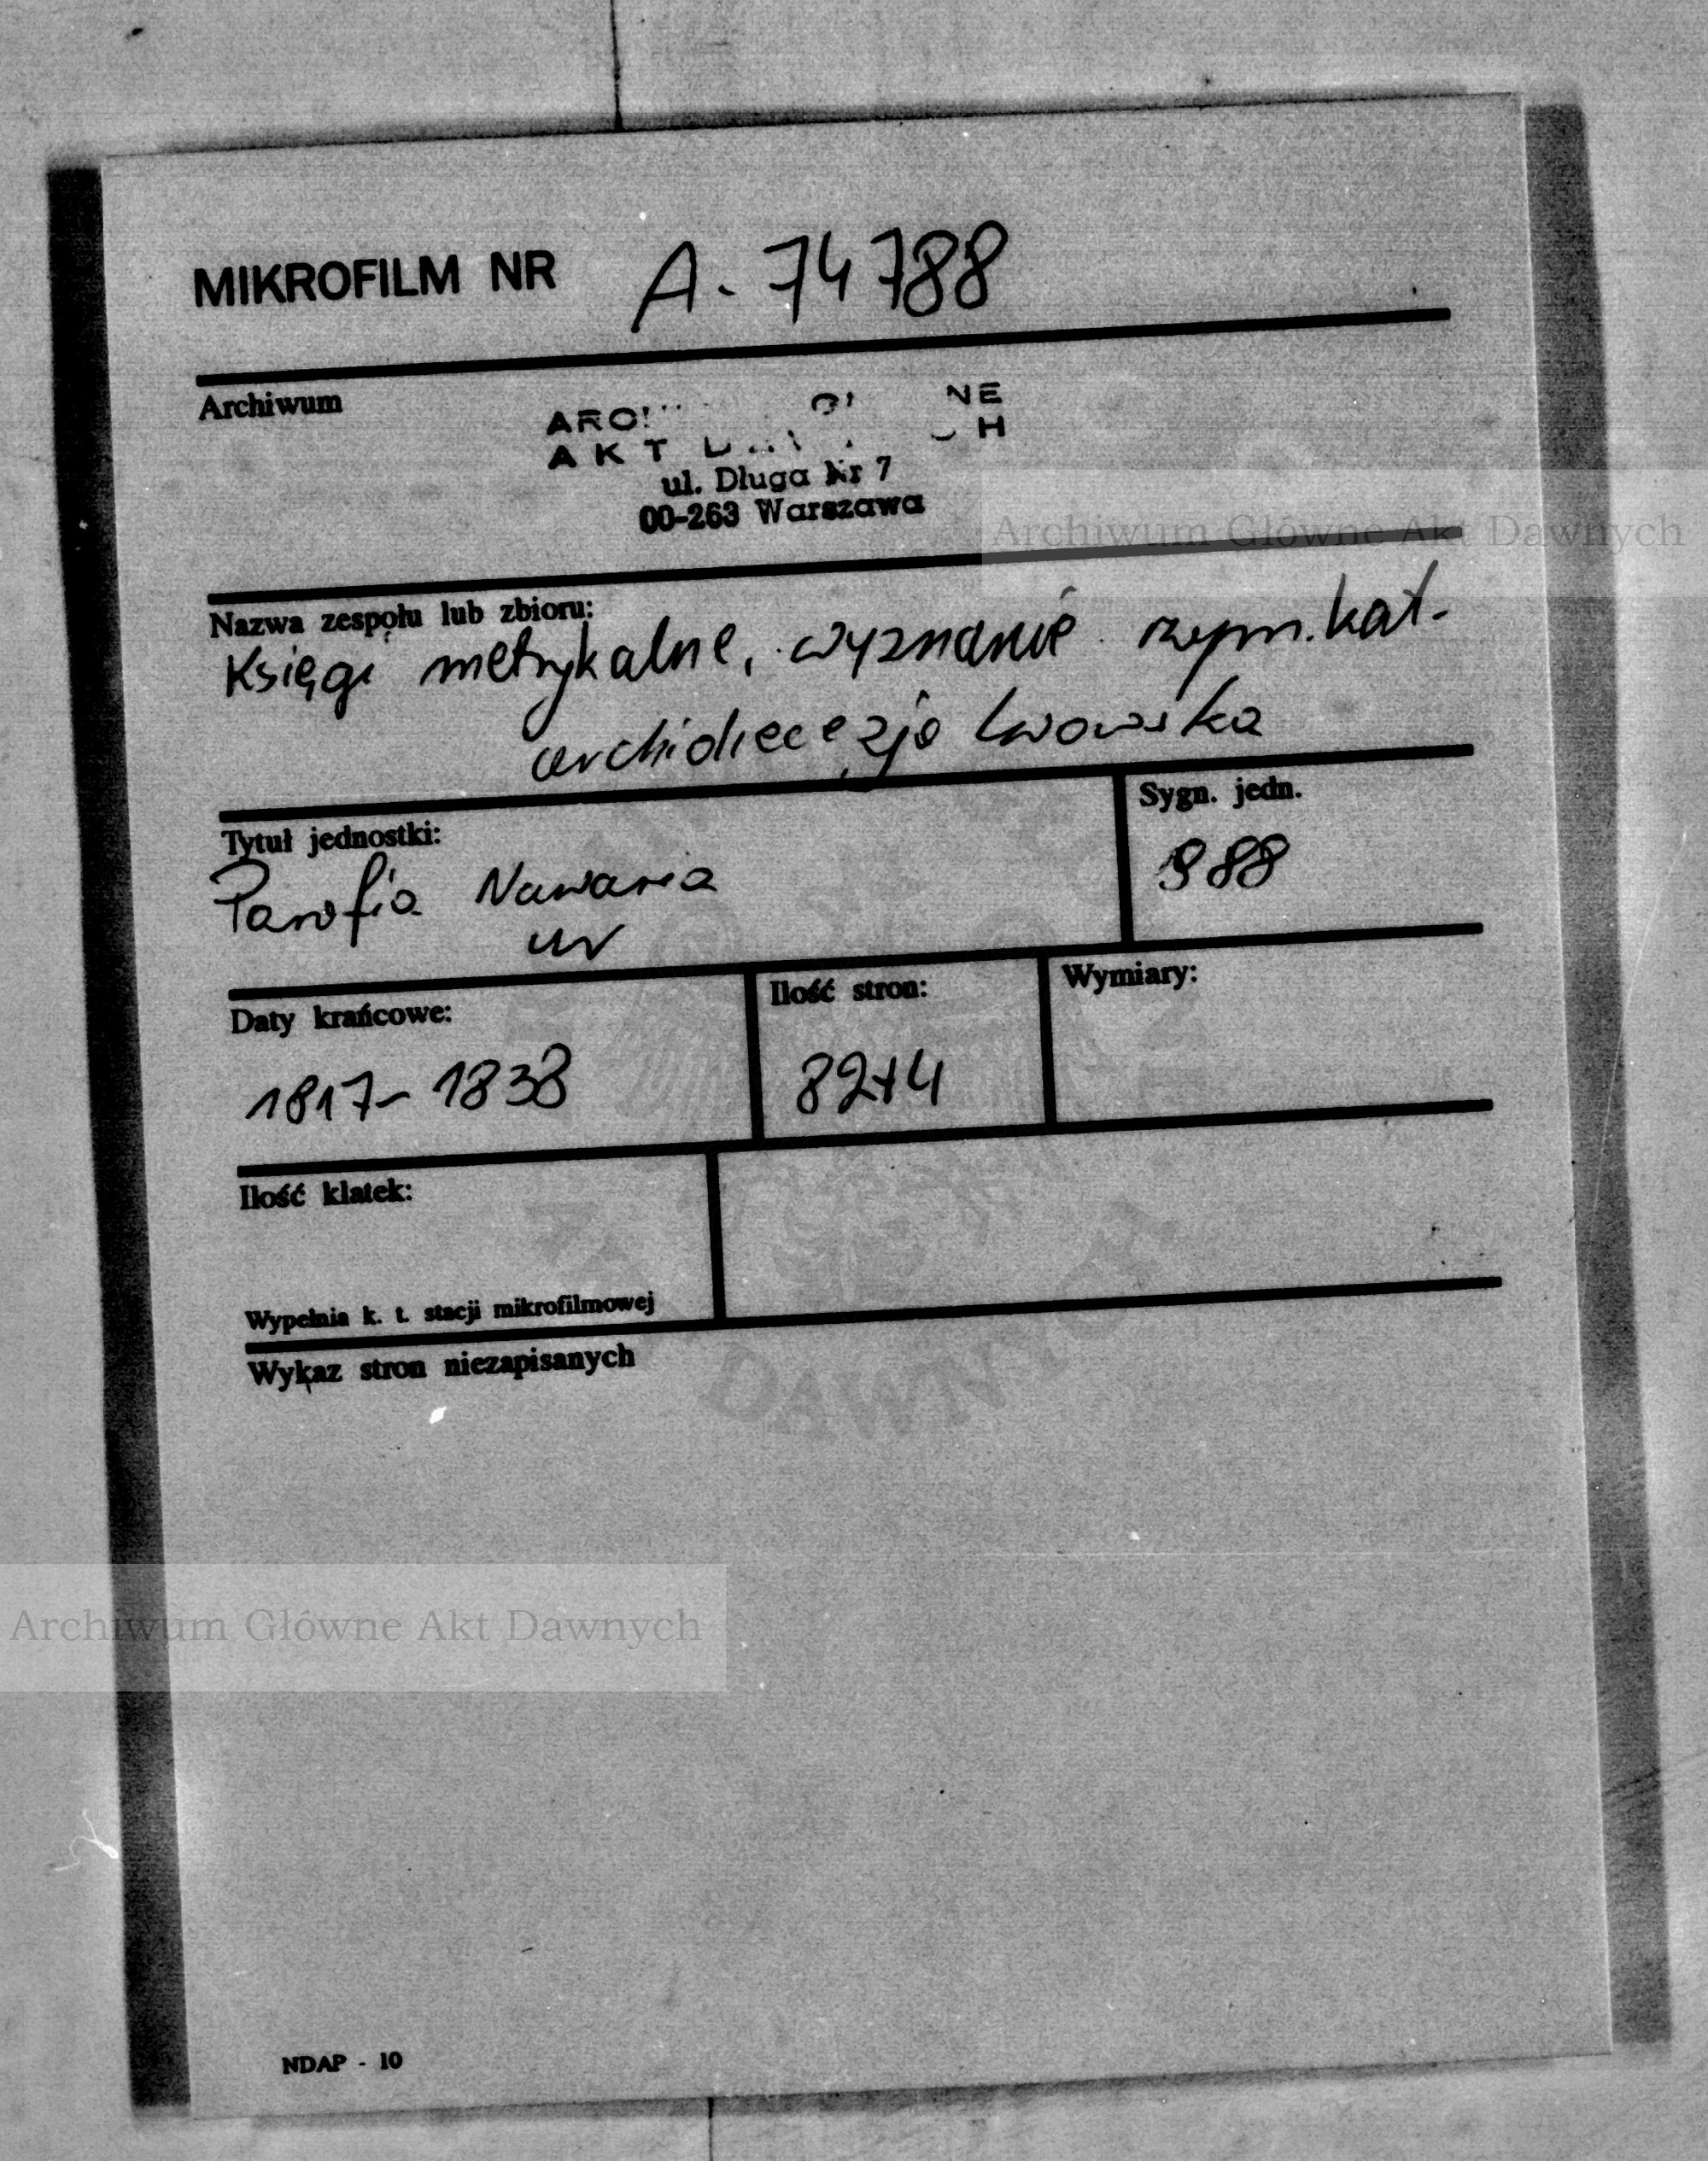 MIKROFILM NR A-74788
Archiwum
AKT
ul. Długa Nr 7
00-263 Warszawa
Archiwum Główne Akt Dawnych
Nazwa zespołu lub zbioru:
Księgi metrykalne, wyznanie rzym. kat.
archidiecezja lwowska
Tytuł jednostki:
Sygn. jedn.
Parafia Nawaria
988
ur
Daty krańcowe:
Ilość stron:
Wymiary:
1817-1838
82+4
Ilość klatek:
Wypełnia k. t. stacji mikrofilmowej
Wykaz stron niezapisanych
DAWNYCH
Archiwum Główne Akt Dawnych
NDAP - 10